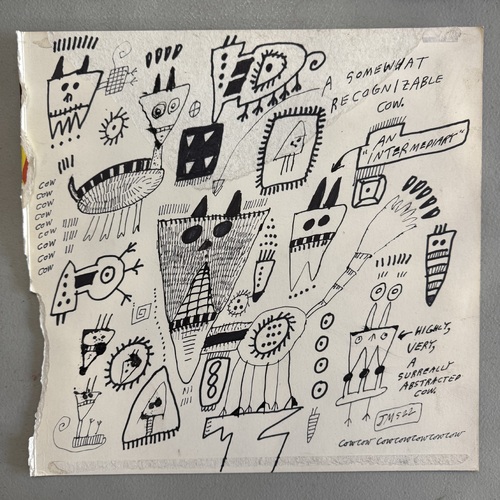 A SOMEWHAT
RECOGNIZABLE
COW.
"AN
INTERMEDIARY"
cow
cow
cow
cow
cow
cow
cow
cow
cow
HIGHLY,
VERY,
A
SURREALLY
ABSTRACTED
COW.
JMS22
cowcow cowcowcowcowcow